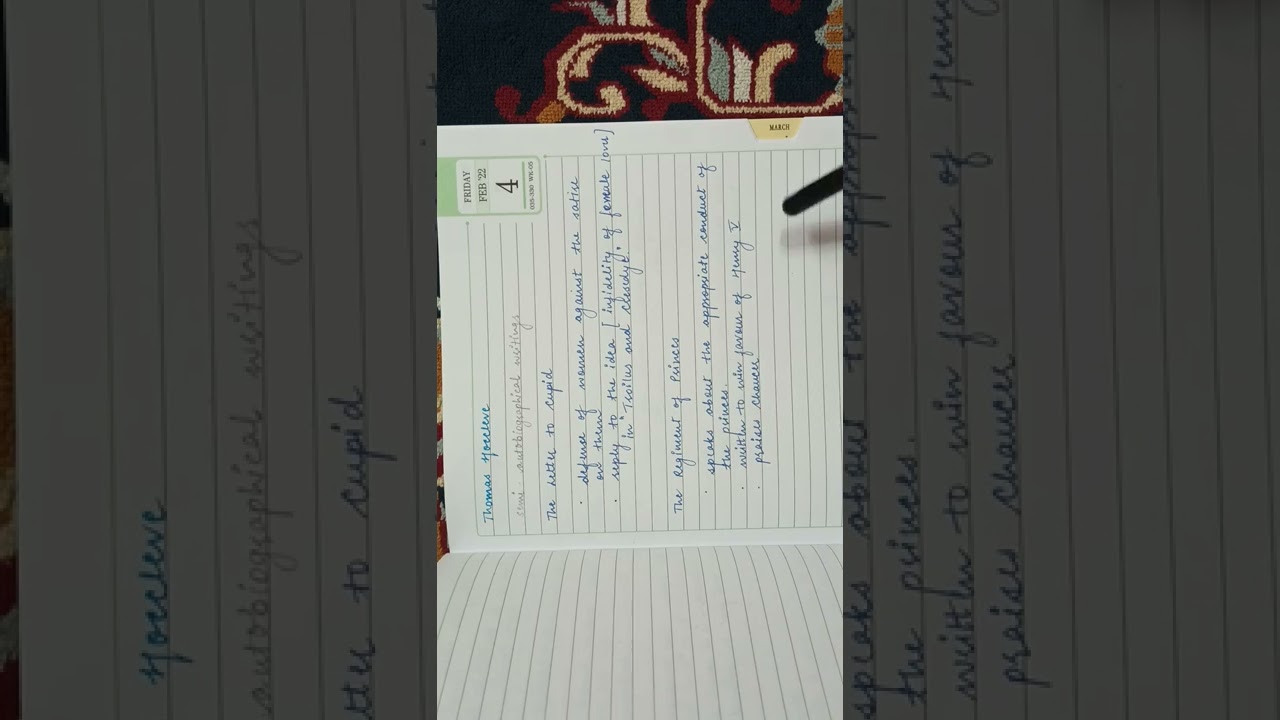 FRIDAY
FEB '22
4
035-330 WK-05
MARCH
Thomas Hoccleve
semi - autobiographical writings
The Letter to Cupid
• defense of women against the satire
on them
• reply to the idea [ infidelity of female love]
in "Troilus and Criseyde".
The Regiment of Princes
• speaks about the appropriate conduct of
the princes.
• written to win favour of Henry V
• praises Chaucer